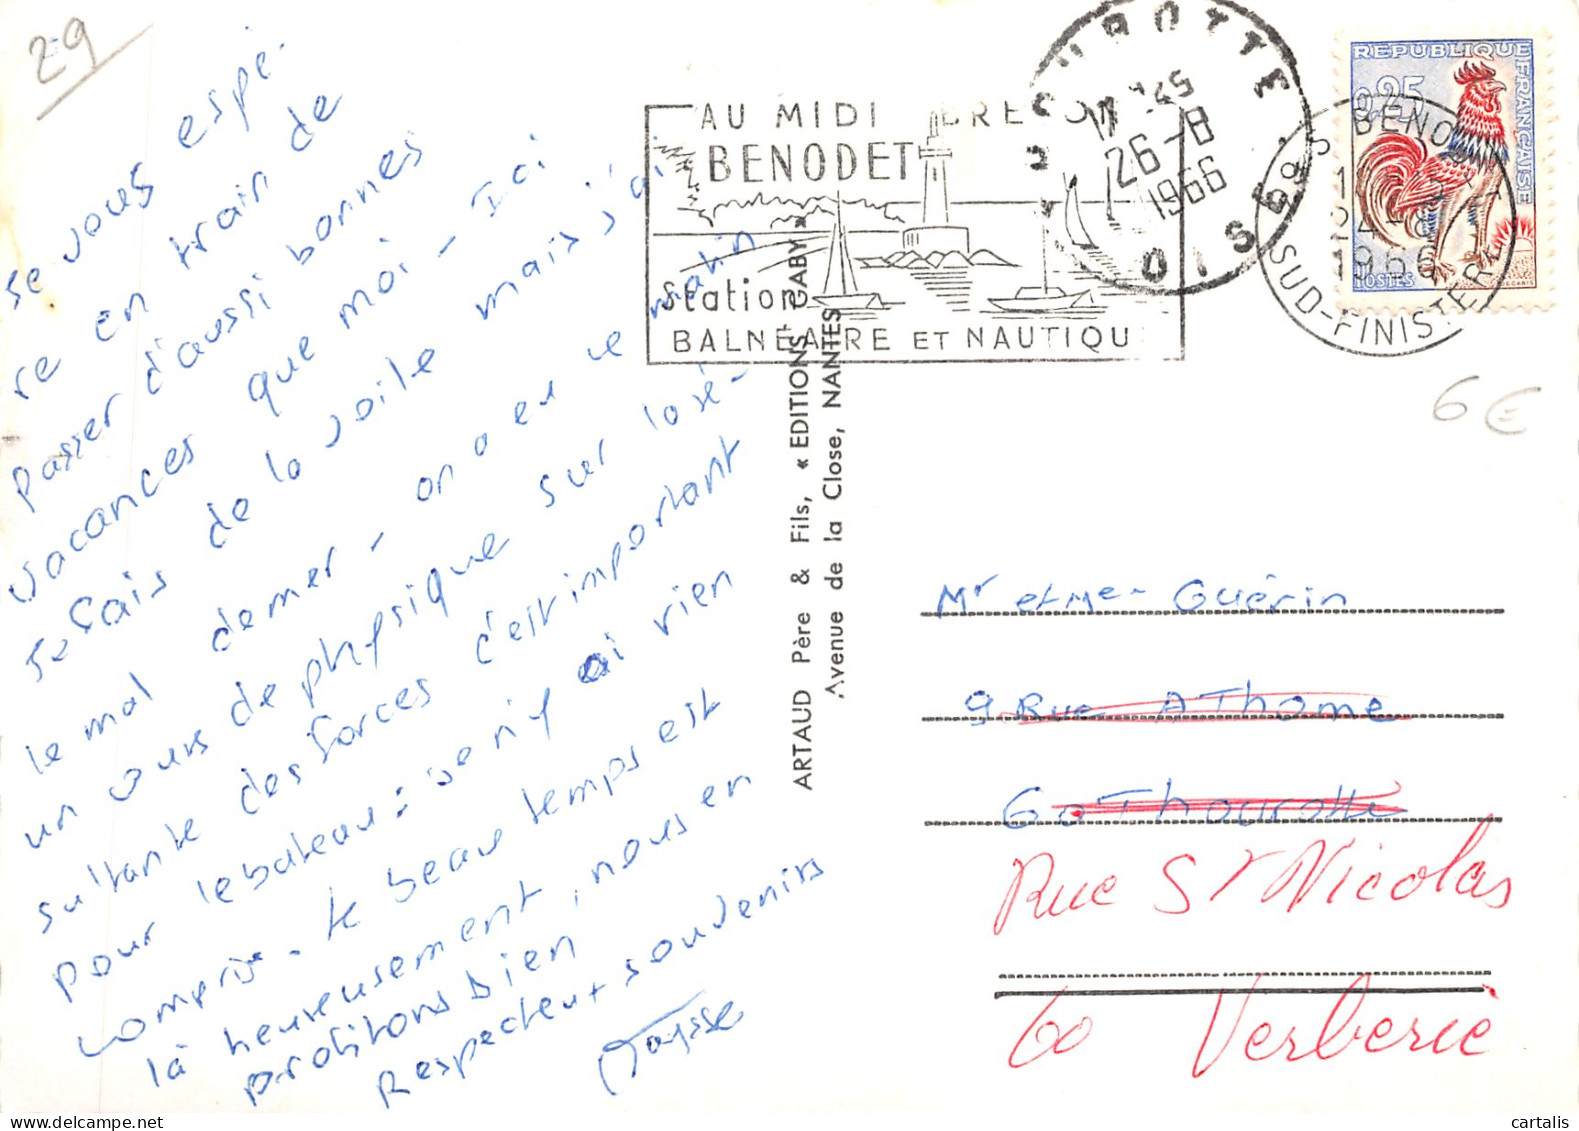 29
Je vous espé-
re en train de
passer d'aussi bonnes
vacances que moi - Ici
je fais de la voile mais j'ai
le mal de mer - on a eu ce matin
un cours de physique sur la ré-
sultante des forces c'est important
pour le bateau : je n'y ai rien
compris - le beau temps est
là heureusement, nous en
profitons bien
Respectueux souvenirs
AU MIDI BRETON
BENODET
Station
BALNEAIRE ET NAUTIQU
THOUROTTE
26-8
1966
OISE
REPUBLIQUE FRANÇAISE
0,25
POSTES
BENODET
1966
SUD-FINISTERE
6 €
ARTAUD Père & Fils, « EDITIONS GABY »
Avenue de la Close, NANTES
Mr et Me - Guérin
9 Rue A Thome
60 Thourotte
Rue St Nicolas
60 Verberie
cartalis.com